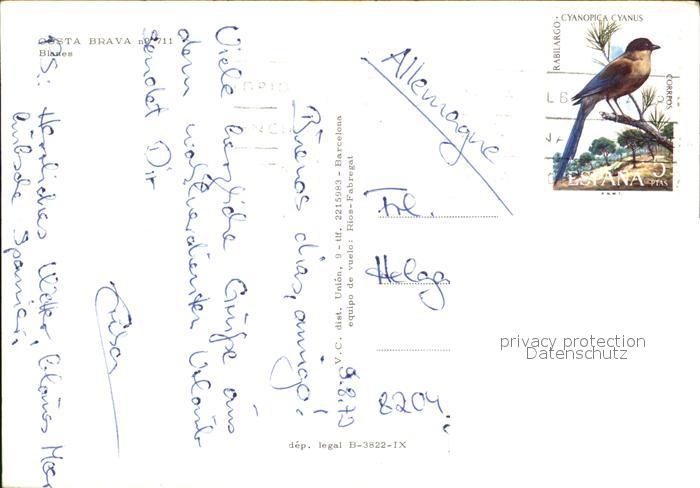 COSTA BRAVA nº 711
Blanes
Buenos dias, amigo!
Viele herzliche Grüße aus
dem wohlverdienten Urlaub
sendet Dir
PS.: Herrliches Wetter, blaues Meer,
hübsche Spanier!
9.8.79
V.C. dist. Unión, 9 - tlf. 2215983 - Barcelona
equipo de vuelo: Rios-Fabregat
dép. legal B-3822-IX
Allemagne
Frl.
Helga
8204
RABILARGO · CYANOPICA CYANUS
CORREOS
ESPAÑA 5 PTAS
privacy protection
Datenschutz